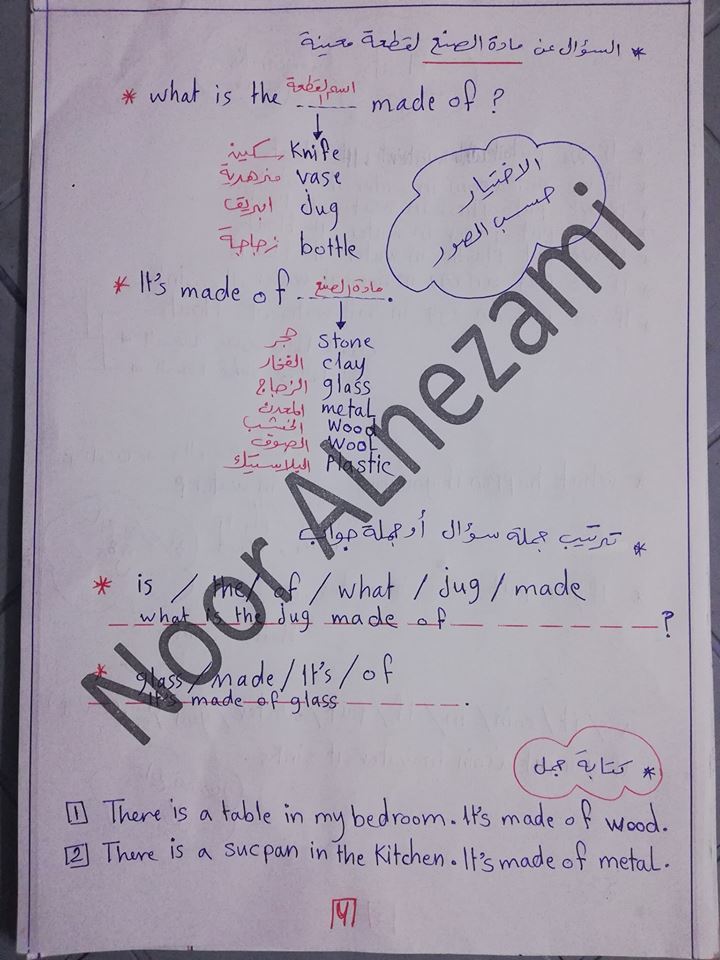 * السؤال عن مادة الصنع لقطعة معينة
* what is the اسم القطعة made of ?
سكينة Knife
مزهرية vase
ابريق Jug
زجاجة bottle
الاختيار
حسب الصور
* It's made of مادة الصنع .
حجر Stone
الفخار clay
الزجاج glass
المعدن metal
الخشب Wood
الصوف Wool
البلاستيك Plastic
* ترتيب جملة سؤال أو جملة جواب
* is / the / of / what / jug / made
what is the jug made of ?
* glass / made / It's / of
It's made of glass .
* كتابة جمل
1 There is a table in my bedroom. It's made of wood.
2 There is a sucpan in the Kitchen. It's made of metal.
Noor ALnezami